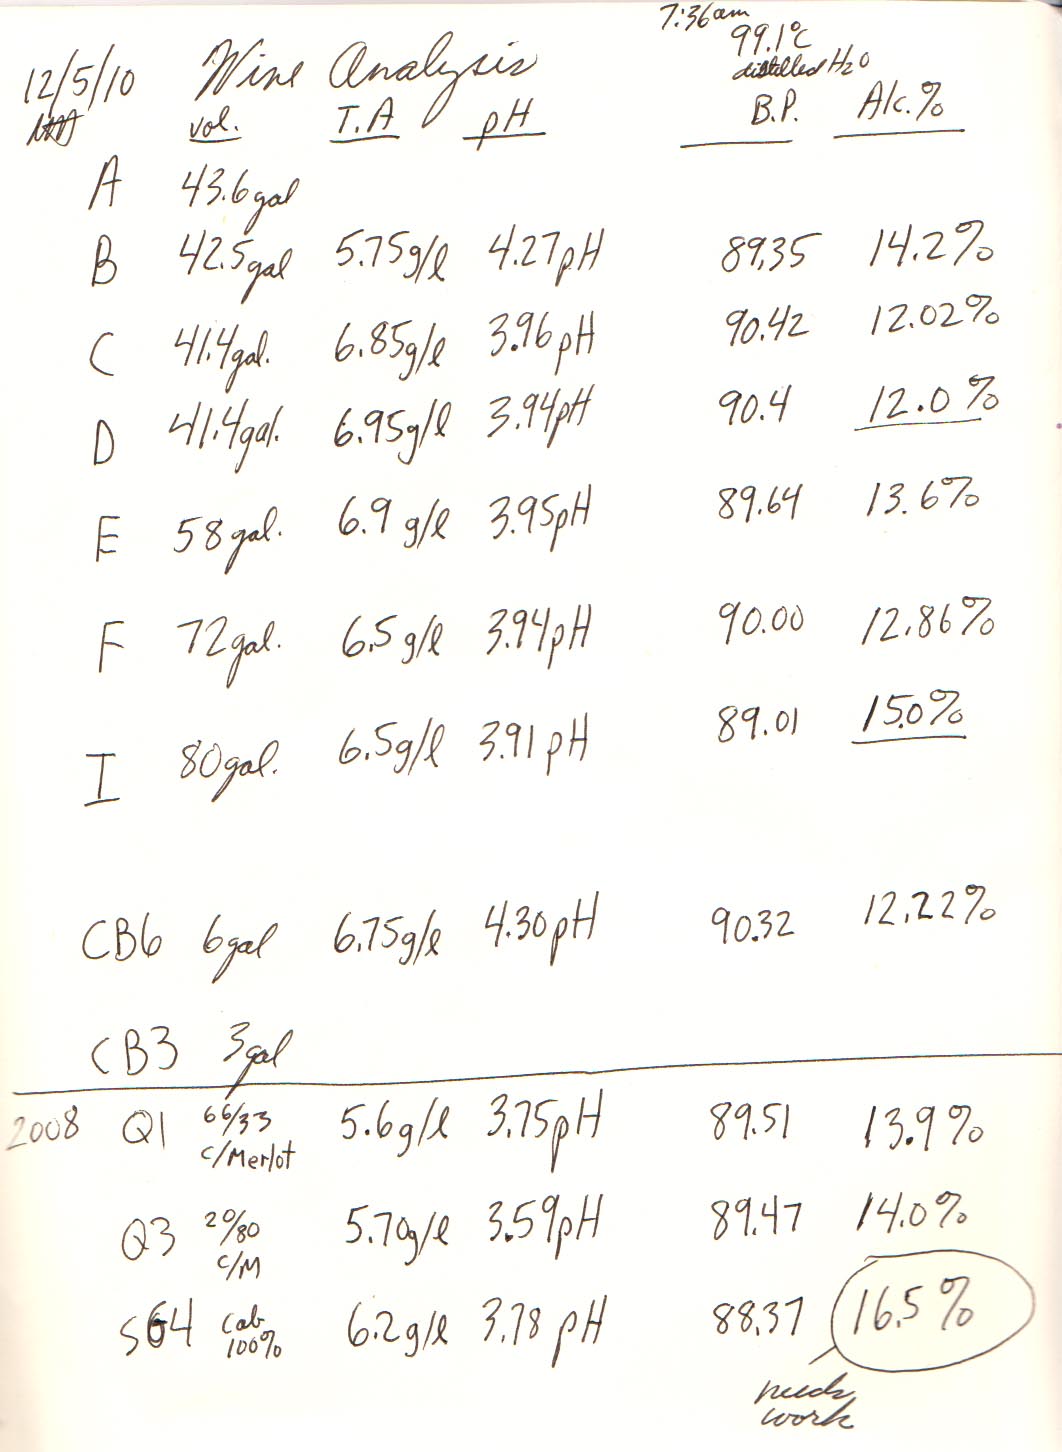 7:36am
99.1°C
distilled H2O
12/5/10 Wine Analysis
vol. T.A pH B.P. Alc.%
A 43.6gal
B 42.5gal 5.75g/l 4.27pH 89.35 14.2%
C 41.4gal. 6.85g/l 3.96pH 90.42 12.02%
D 41.4gal. 6.95g/l 3.94pH 90.4 12.0%
E 58gal. 6.9 g/l 3.95pH 89.64 13.6%
F 72gal. 6.5 g/l 3.94pH 90.00 12.86%
I 80gal. 6.5g/l 3.91 pH 89.01 15.0%
CB6 6gal 6.75g/l 4.30pH 90.32 12.22%
CB3 3gal
2008 Q1 66/33 5.6g/l 3.75pH 89.51 13.9%
c/Merlot
Q3 20/80 5.70g/l 3.59pH 89.47 14.0%
c/M
S64 Cab 6.2g/l 3.78 pH 88.37 16.5%
100%
needs
work